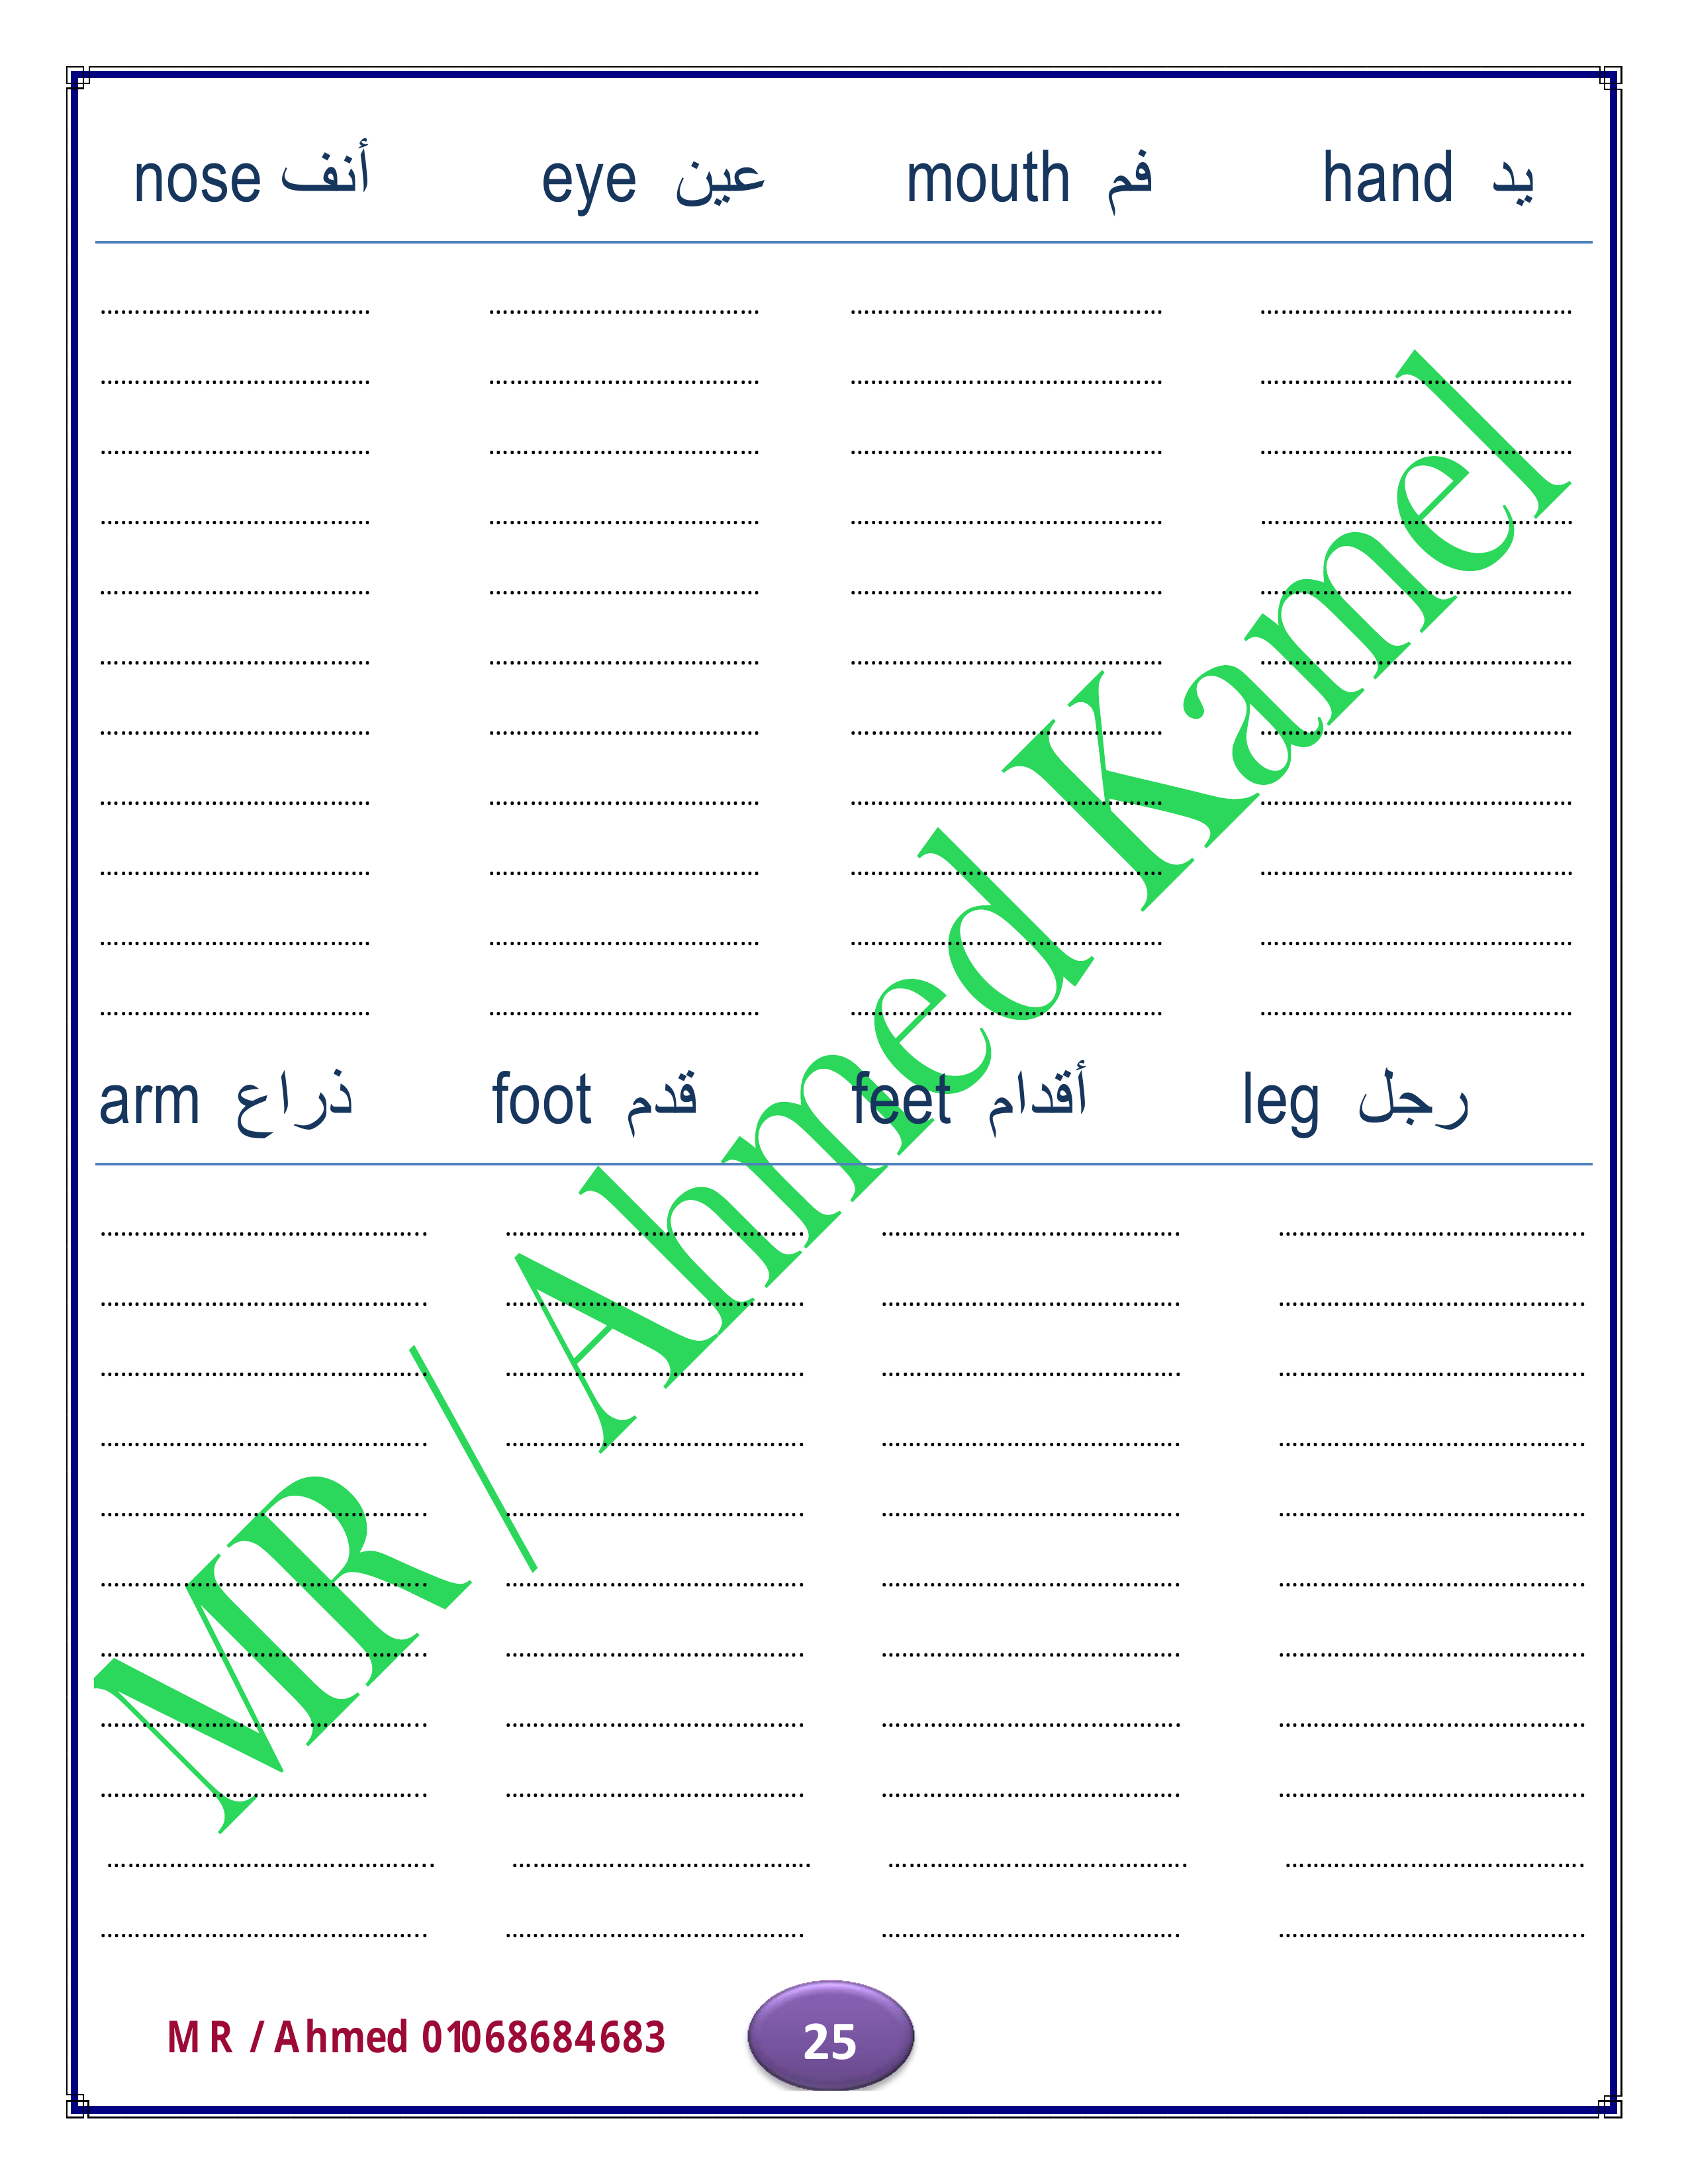 nose أنف eye عين mouth فم hand يد
arm ذراع foot قدم feet أقدام leg رجل
MR / Ahmed Kamel
MR / Ahmed 01068684683 25